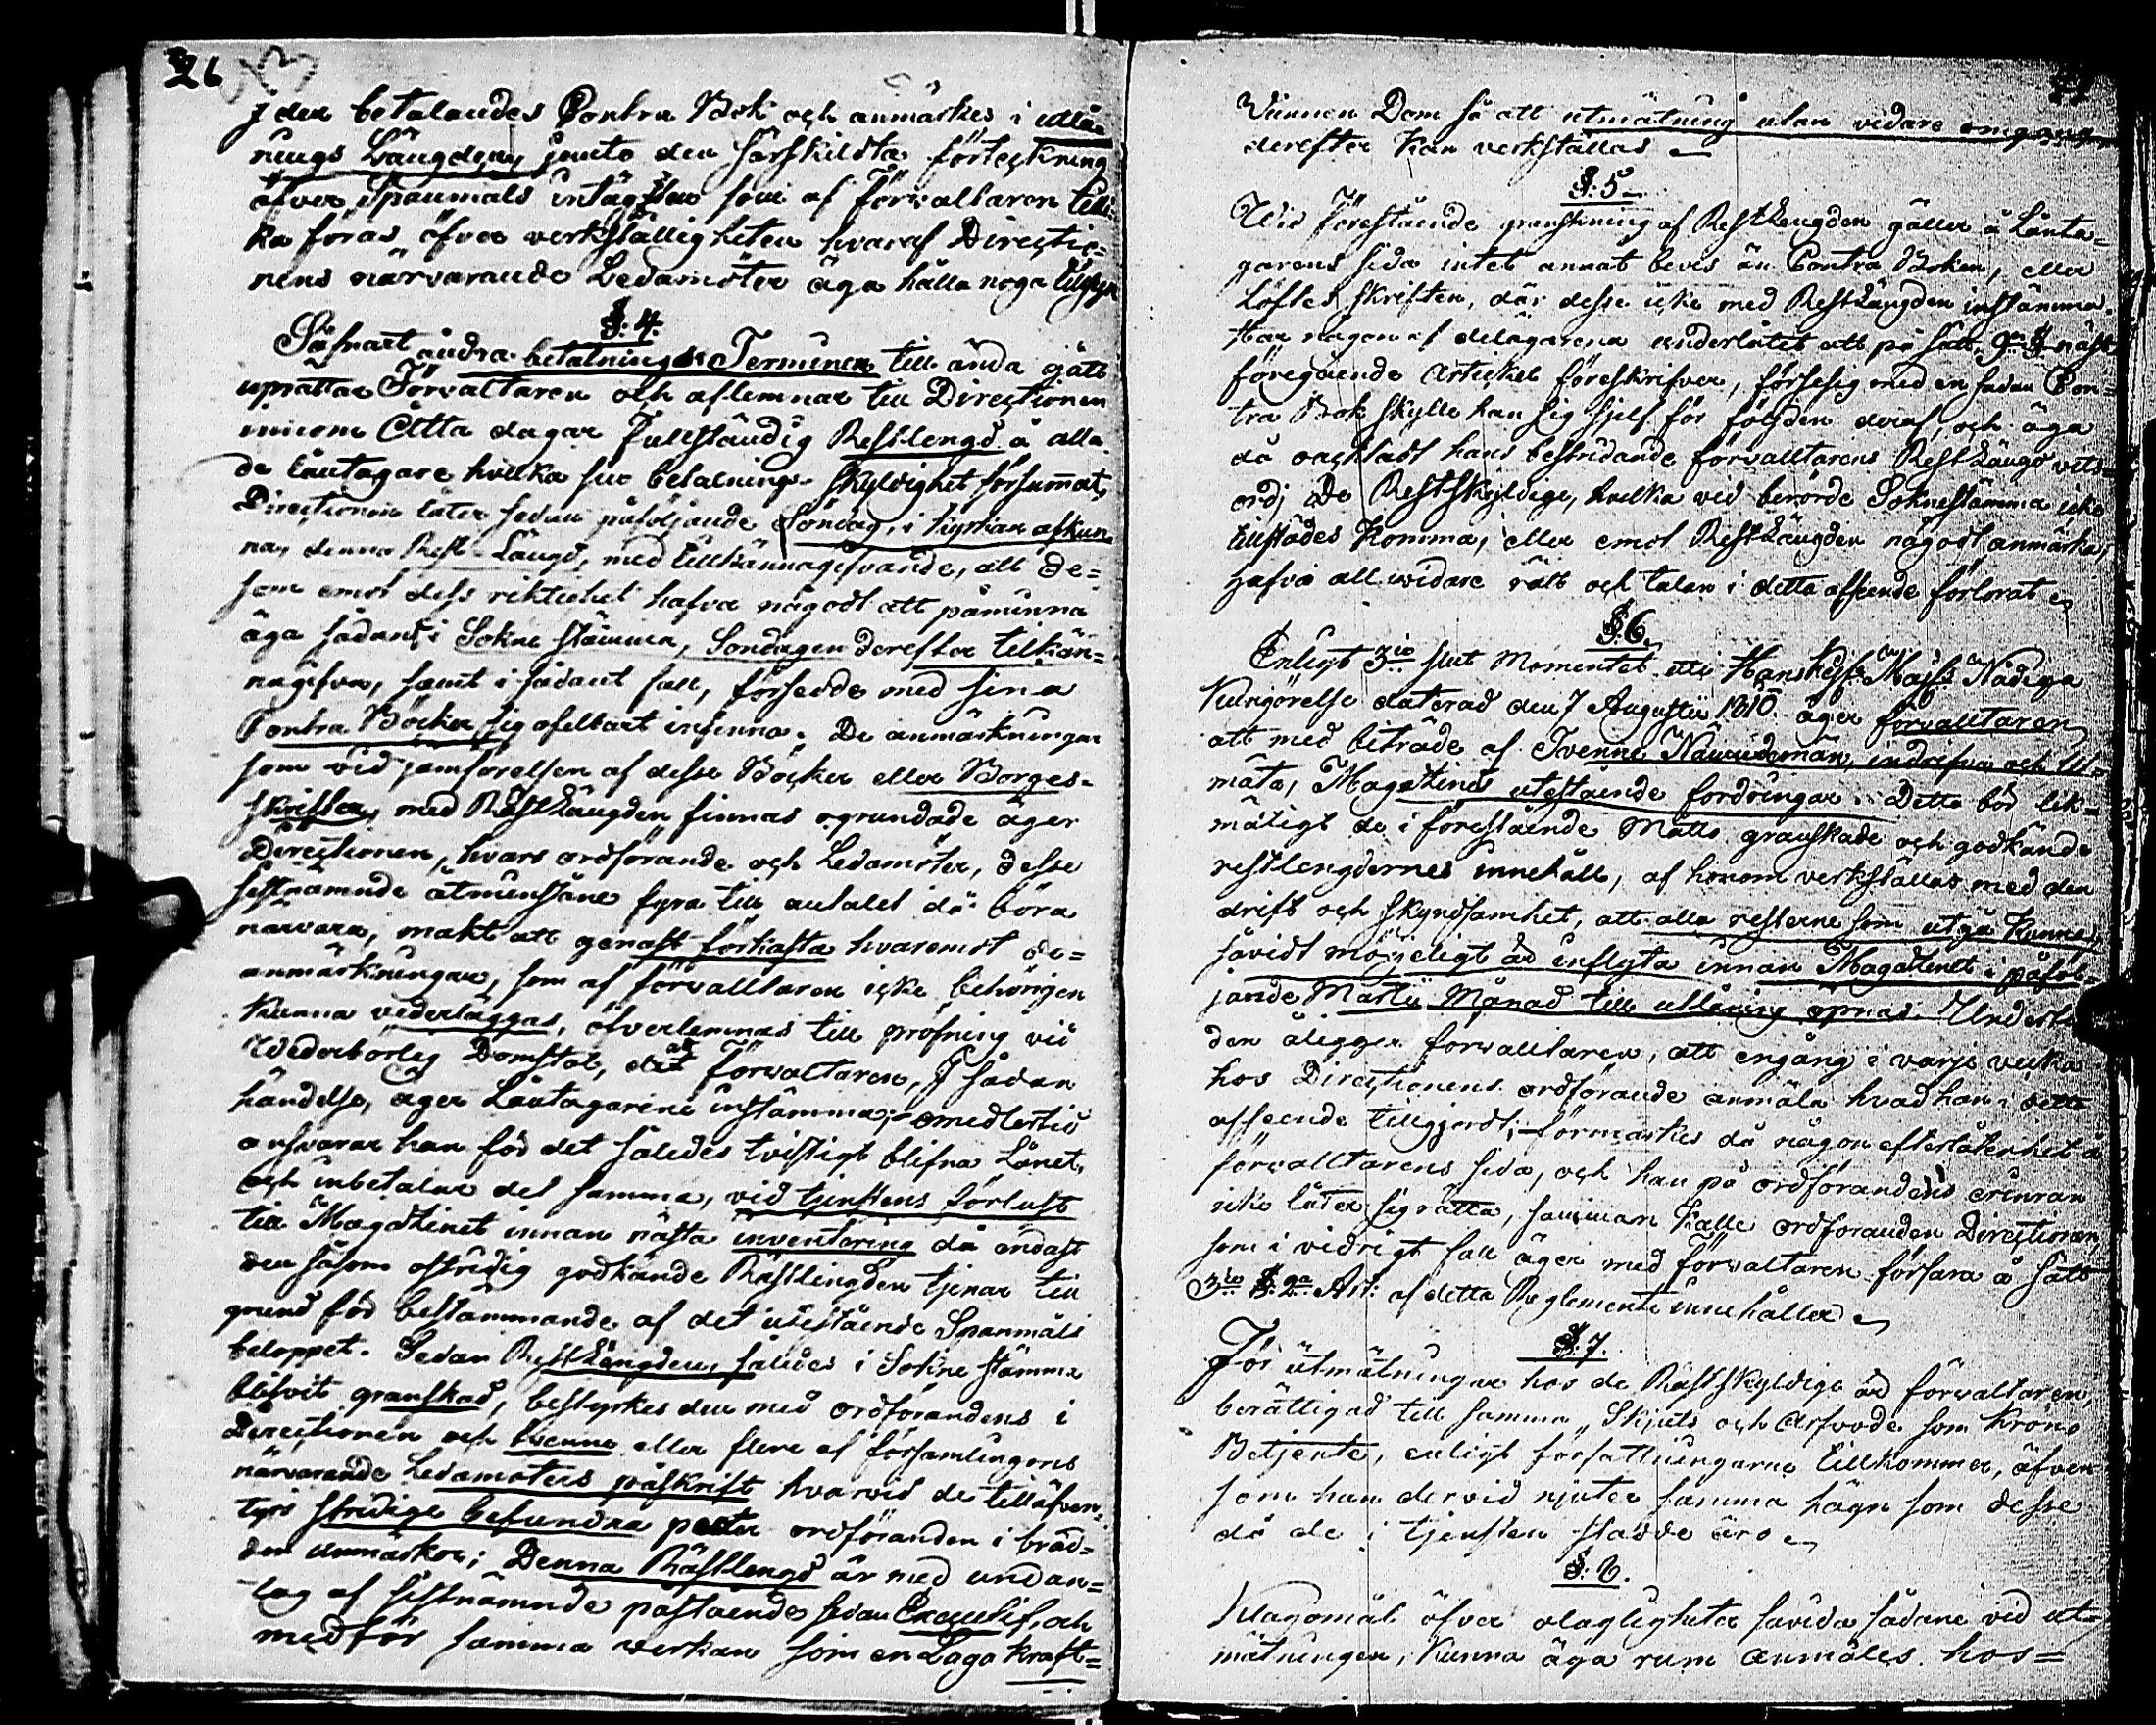 26
I den betalandes Contra Bok och anmärkes i utlå-
nings Längden, jemte den särskildta förteckning
öfver Spanmåls intägten som af Förvaltaren tilli-
ka föras, öfver verkställigheten hvaraf Directio-
nens närvarande Ledamöter äga hålla noga tilsyn
§: 4.
Såsnart andra betalnings Terminen till ända gått
uprättar Förvaltaren och aflemnar till Directionen
innom Åtta dagar Fullständig Restlengd å alla
de Låntagare hvilka sin betalnings skyldighet försummat,
Directionen låter sedan påföljande Söndag, i kyrkan afkun-
na, denna Rest-Längd, med tillkännagifvande, att de-
som emot dess riktighet hafva någodt att påminna
äga sådant, i Sokne stämma, Söndagen derefter tilkän-
nagifva, samt i sådant fall, försedde med sina
Contra Böcker sig ofelbart infinna. De anmärkningar
som vid jemförelsen af desse Böcker eller Borges-
skriften, med Restlängden finnas ogrundade äger
Directionen, hvars ordförande och Ledamöter, desse
sistnämnde åtminstone fyra till antalet då böra
närvara, makt att genast förkasta hvaremot de-
anmärkningar, som af förvalltaren icke behörigen
kunna vederläggas, öfverlemnas till pröfning vid
Wederbörlig Domstol, dit Förvaltaren, I sådan
händelse, äger Låntagarene instämma; emedlertid
ansvarar han för det således tvistigt blifna Lånet,
och inbetalar det samma, vid tjenstens förlust
till Magatzinet innan nästa inventering då endast
den såsom ostridig godkände Rästlängden tjenar till
grund för bestämmande af det utestående Spanmåls
beloppet. Sedan Restlängden, således i Sokne stämma
blifvit granskad, bestyrkes den med ordförandens i
Directionen och tvenne eller flere af församlingens
närvarande Ledamöters påskrift hvarvid de tilläfven-
tyrs stridige befundna poster ordföranden i bräd-
den anmärker; Denna Rästlengd är med undan-
tag af sistnämnde påstående sedan Executif, och
medför samma verkan som en Laga kraft-
Vunnen Dom så att utmätning utan vidare omgång
derefter kan verkställas
§: 5.
Wid Förestående granskning af Restlengden gäller å Lånta-
garens sida intet annat bevis än Contra Boken, eller
Löftes skriften, där desse icke med Restlängden instämma.
Har någon af delägarena underlåtit att på sätt 9de § näst
föregående Artickel föreskrifver, förse sig med en sådan Con-
tra Bok skylle han sig sjelf för följden deraf, och äga
då oacktadt hans bestridande förvalltarens Restlängd vits-
ord; De Restskyldige, hvilka vid berörde Soknestämma icke
tillstädes komma, eller emot Restlängden någodt anmärka,
hafva all widare rätt och talan i detta afseende förlorat
§: 6.
Enligt 3io slut Momentet uti Hans Kgl. Majts Nådiga
Kungörelse daterad den 7 Augustii 1810. äger förvalltaren,
att med biträde af Tvenne Nämndemän, indrifva och ut-
mäta, Magatzinets utestående fordringar. Detta bör lik-
mätigt de i förestående Måtto granskade och godkände
restlengdernes innehåll, af honom verkställas med den
drift och skyndsamhet, att alla resterne som utgå kunna,
såvidt möjeligt är inflyta innan Magatzinet i påföl-
jande Martii Månad till utlåning öpnas. Underti-
den åligger förvalltaren, att engång i varje vecka
hos Directionens ordförande anmäla hvad han i detta
afseende tillgjordt; förmärkes då någon efterlåtenhet å
förvalltarens sida, och han på ordförandens erinran
icke låter sig rätta, samman kalle ordföranden Directionen,
som i vidrigt fall äger med Förvaltaren förfara å sätt
3io §. 2a Art: af detta Reglemente innehåller
§: 7.
För utmätningar hos de Rästskyldige är förvaltaren,
berättigad till samma, Skjuts och Arfvode som Krono
Betjente, enligt författningarne tillkommer, äfven
som han dervid njuter samma hägn som desse
då de i tjensten stadde äro
§: 8.
Klagomål öfver olagligheter såvida sådane vid ut-
mätningen, kunna äga rum anmäles hos=